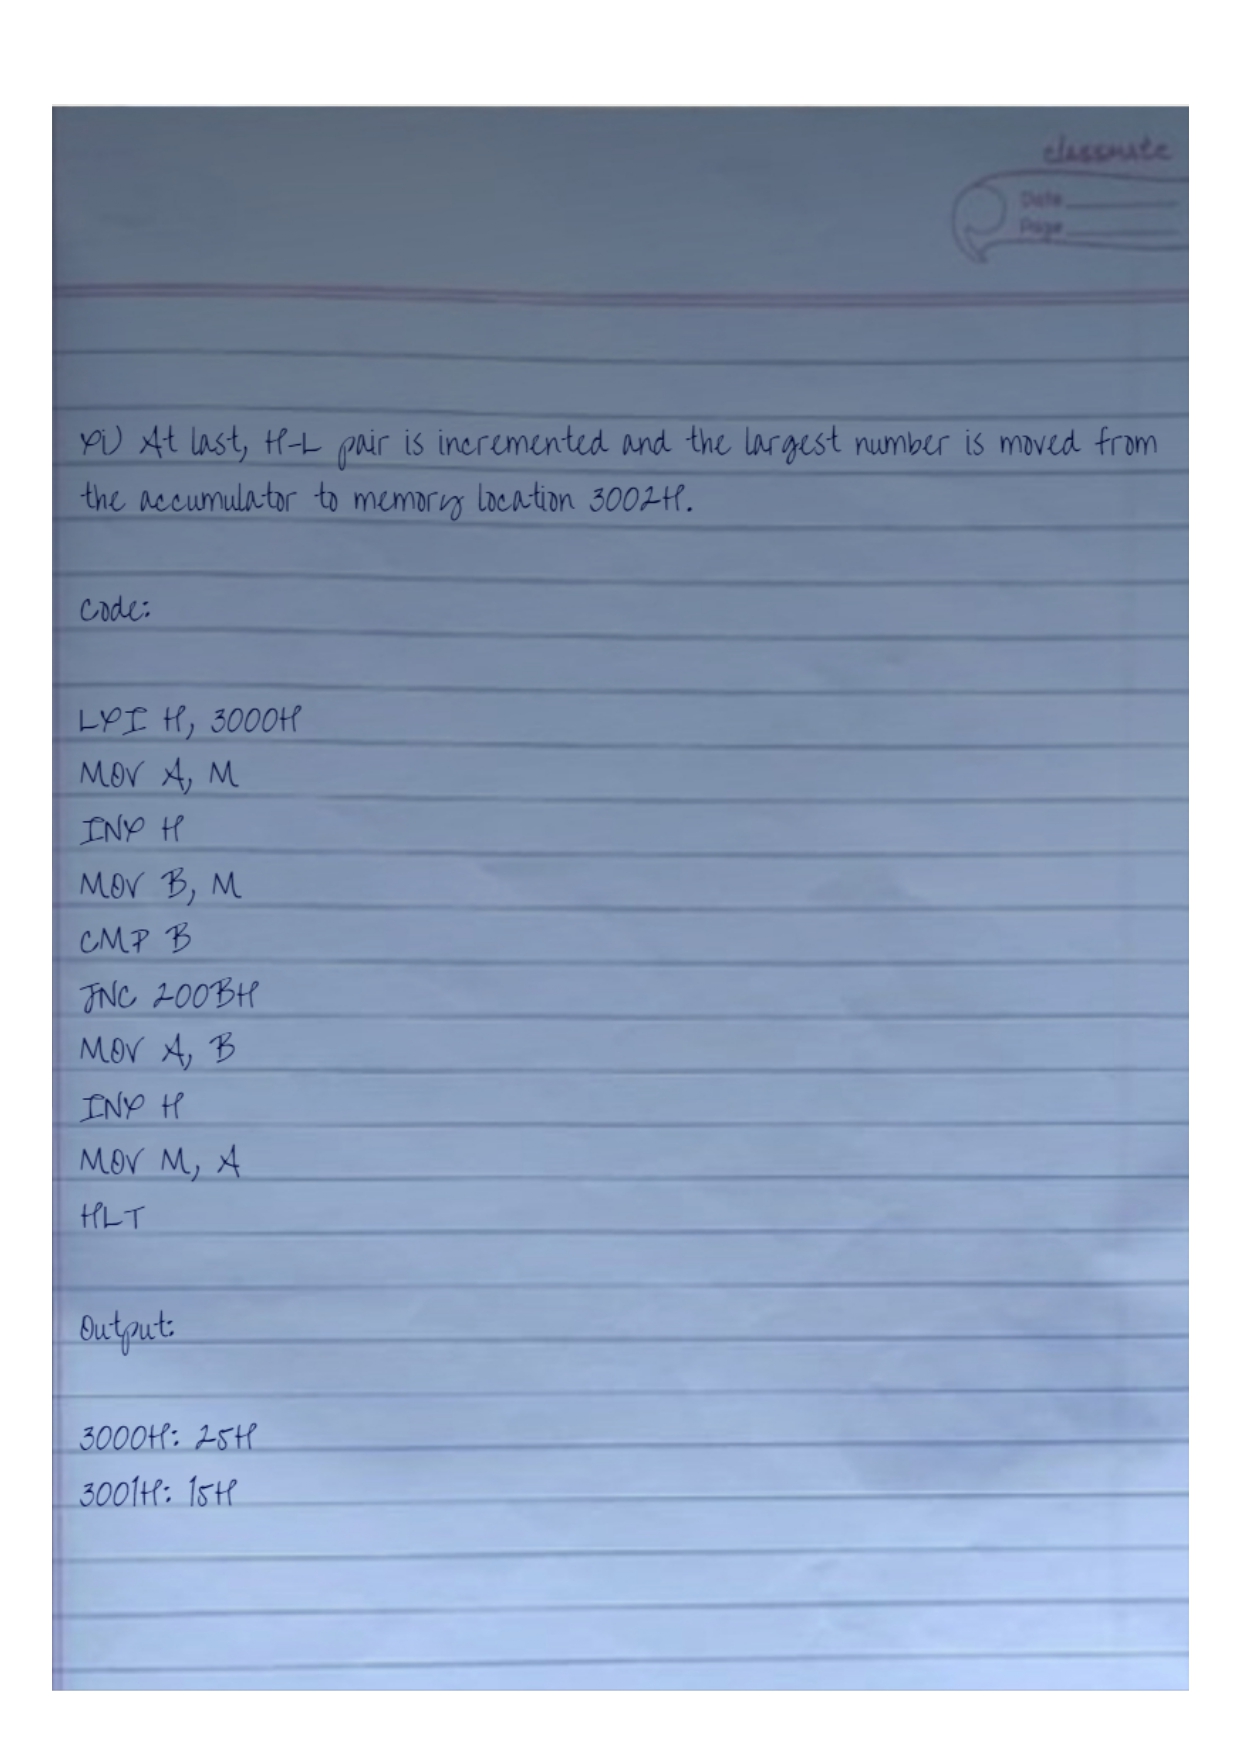 classmate
Date
Page
xi) At last, H-L pair is incremented and the largest number is moved from
the accumulator to memory location 3002H.
Code:
LXI H, 3000H
MOV A, M
INX H
MOV B, M
CMP B
JNC 200BH
MOV A, B
INX H
MOV M, A
HLT
Output:
3000H: 25H
3001H: 15H